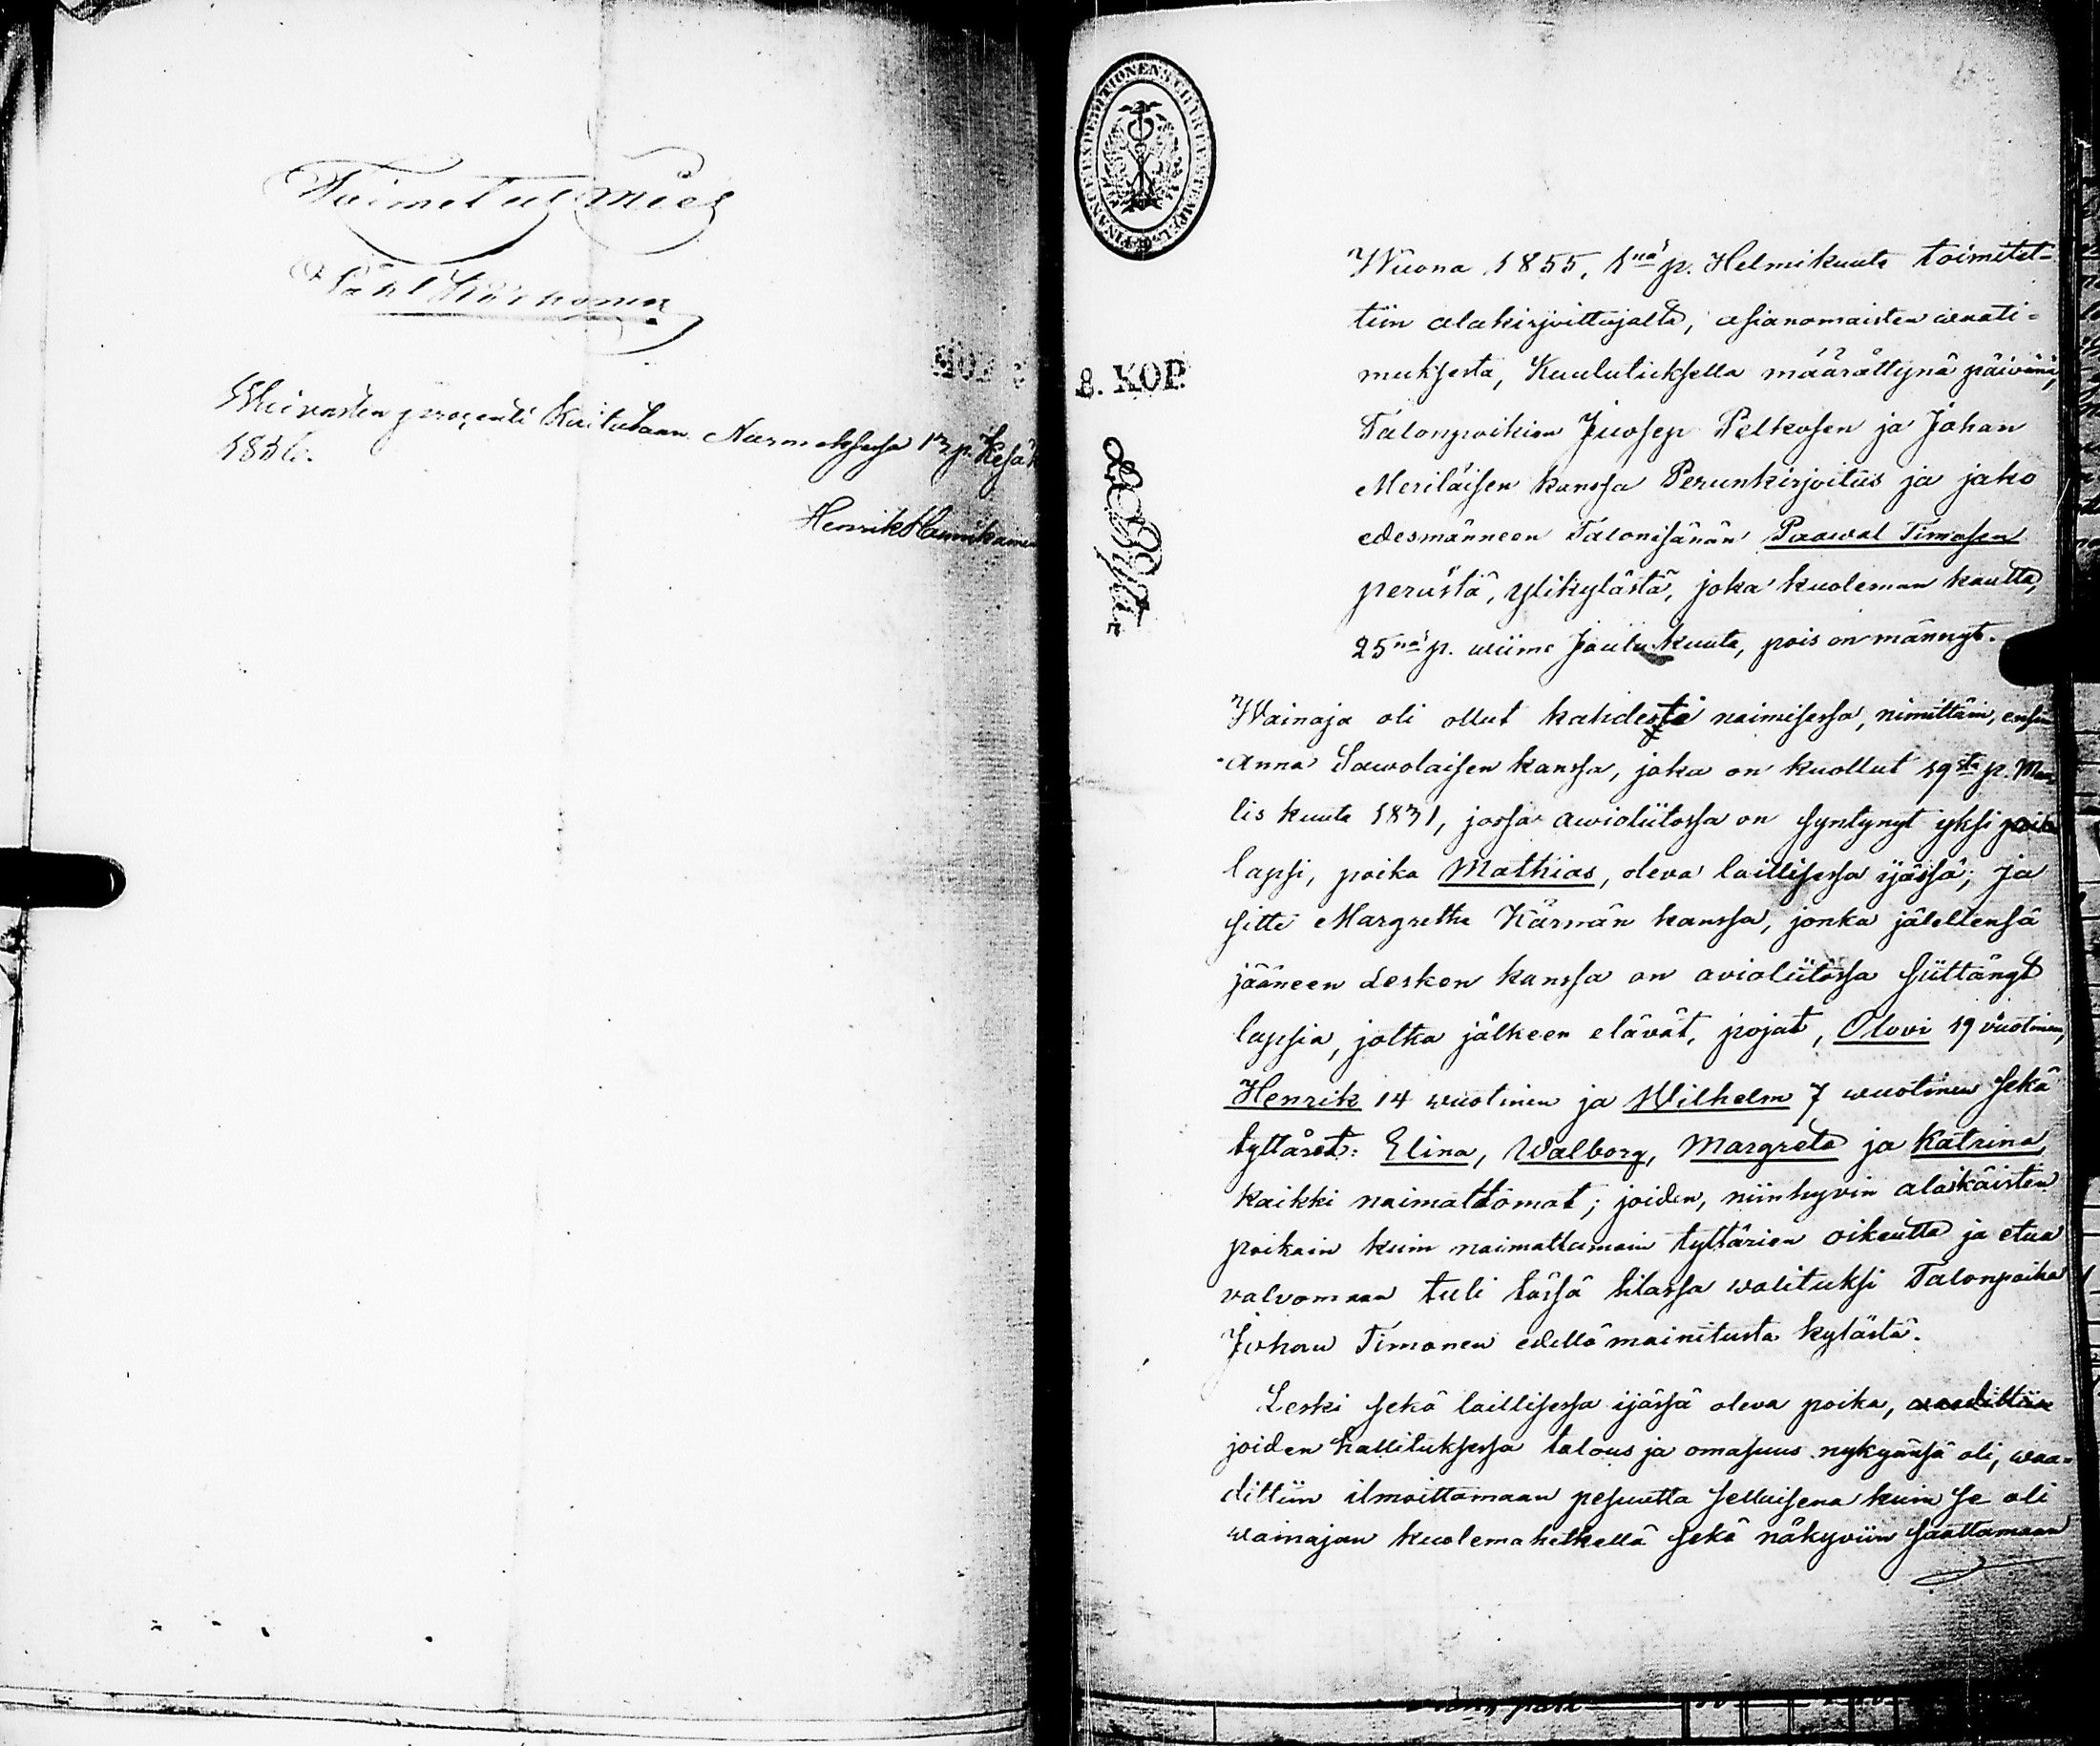 Toimetus mies
Påhl Körhonen
Waivasten prozenti Kuitataan Nurmeksessa 13 p. Kesäk
1856.
Henrik Hannikainen
FINANCE EXPEDITIONENS CHARTÆ STEMPEL
8. KOP.
Wuona 1855, 1nä p. Helmikuuta toimitet-
tiin alakirjoittajalta, asianomaisten waati-
muksesta, Kuulutuksella määrättynä päivänä,
Talonpoikien Juosep Pelkosen ja Johan
Meriläisen kanssa Perunkirjoitus ja jako
edesmänneen Talonisänän Paawal Timosen
perästä, ylikylästä, joka kuoleman kautta,
25nä p. wiime Joulukuuta, pois on männyt.
Wainaja oli ollut kahdesti naimisessa, nimittäin, ensin
Anna Sawolaisen kanssa, joka on kuollut 19sta p. Maa
lis kuuta 1831, jossa awioliitossa on syntynyt yksi poika
lapsi, poika Mathias, oleva laillisessa ijässä; ja
sitte Margretha Kärnän kanssa, jonka jälellensä
jääneen Lesken kanssa on avioliitossa siittänyt
lapsia, jotka jälkeen elävät, pojat, Olovi 19 vuotinen,
Henrik 14 wuotinen ja Wilhelm 7 wuotinen sekä
tyttäret: Elina, Walborg, Margreta ja Katrina,
kaikki naimattomat; joiden, niinhyvin alaikäisten
poikain kuin naimattomain tyttärien oikeutta ja etua
valvomaan tuli tässä tilassa walituksi Talonpoika
Johan Timonen edellä mainitusta kylästä.
Leski sekä laillisessa ijässä oleva poika, waadittiin
joiden hallituksessa talous ja omasuus nykyänsä oli, waa-
dittiin ilmoittamaan pesuutta sellaisena kuin se oli
wainajan kuolemahetkellä sekä näkyviin saattamaan